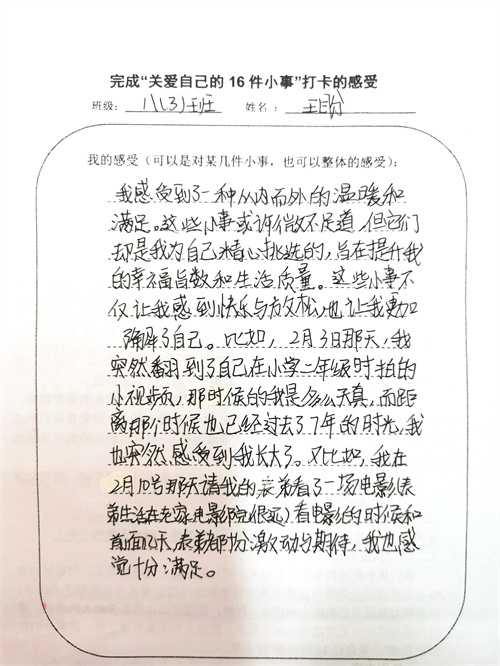 完成“关爱自己的16件小事”打卡的感受
班级： 八(3)班 姓名： 王盼
我的感受（可以是对某几件小事，也可以整体的感受）：
我感受到了一种从内而外的温暖和
满足。这些小事或许微不足道，但它们
却是我为自己精心挑选的，旨在提升我
的幸福指数和生活质量。这些小事不
仅让我感到快乐与放松，也让我更加
了解了自己。比如，2月3日那天，我
突然翻到了自己在小学二年级时拍的
小视频，那时候的我是多么天真，而距
离那个时候也已经过去了7年的时光，我
也突然感受到我长大了。又比如，我在
2月10号那天请我的表弟看了一场电影(表
弟生活在老家,电影院很远)看电影的时候和
前面几天,表弟都十分激动与期待，我也感
觉十分满足。